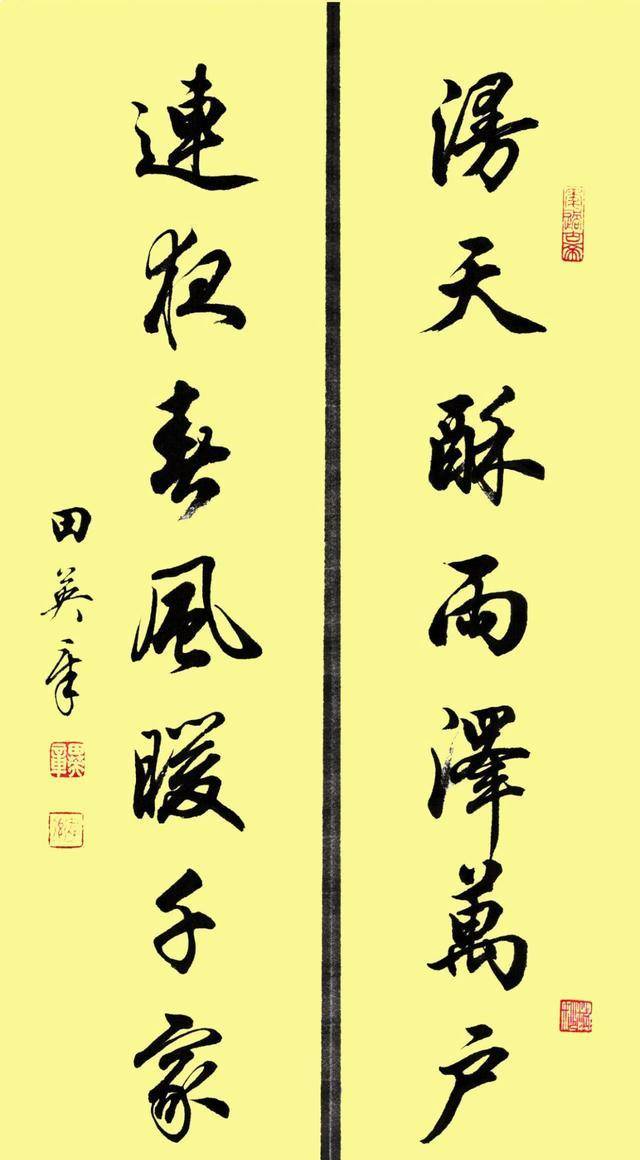 漫天酥雨澤萬户
連夜春風暖千家
田英章